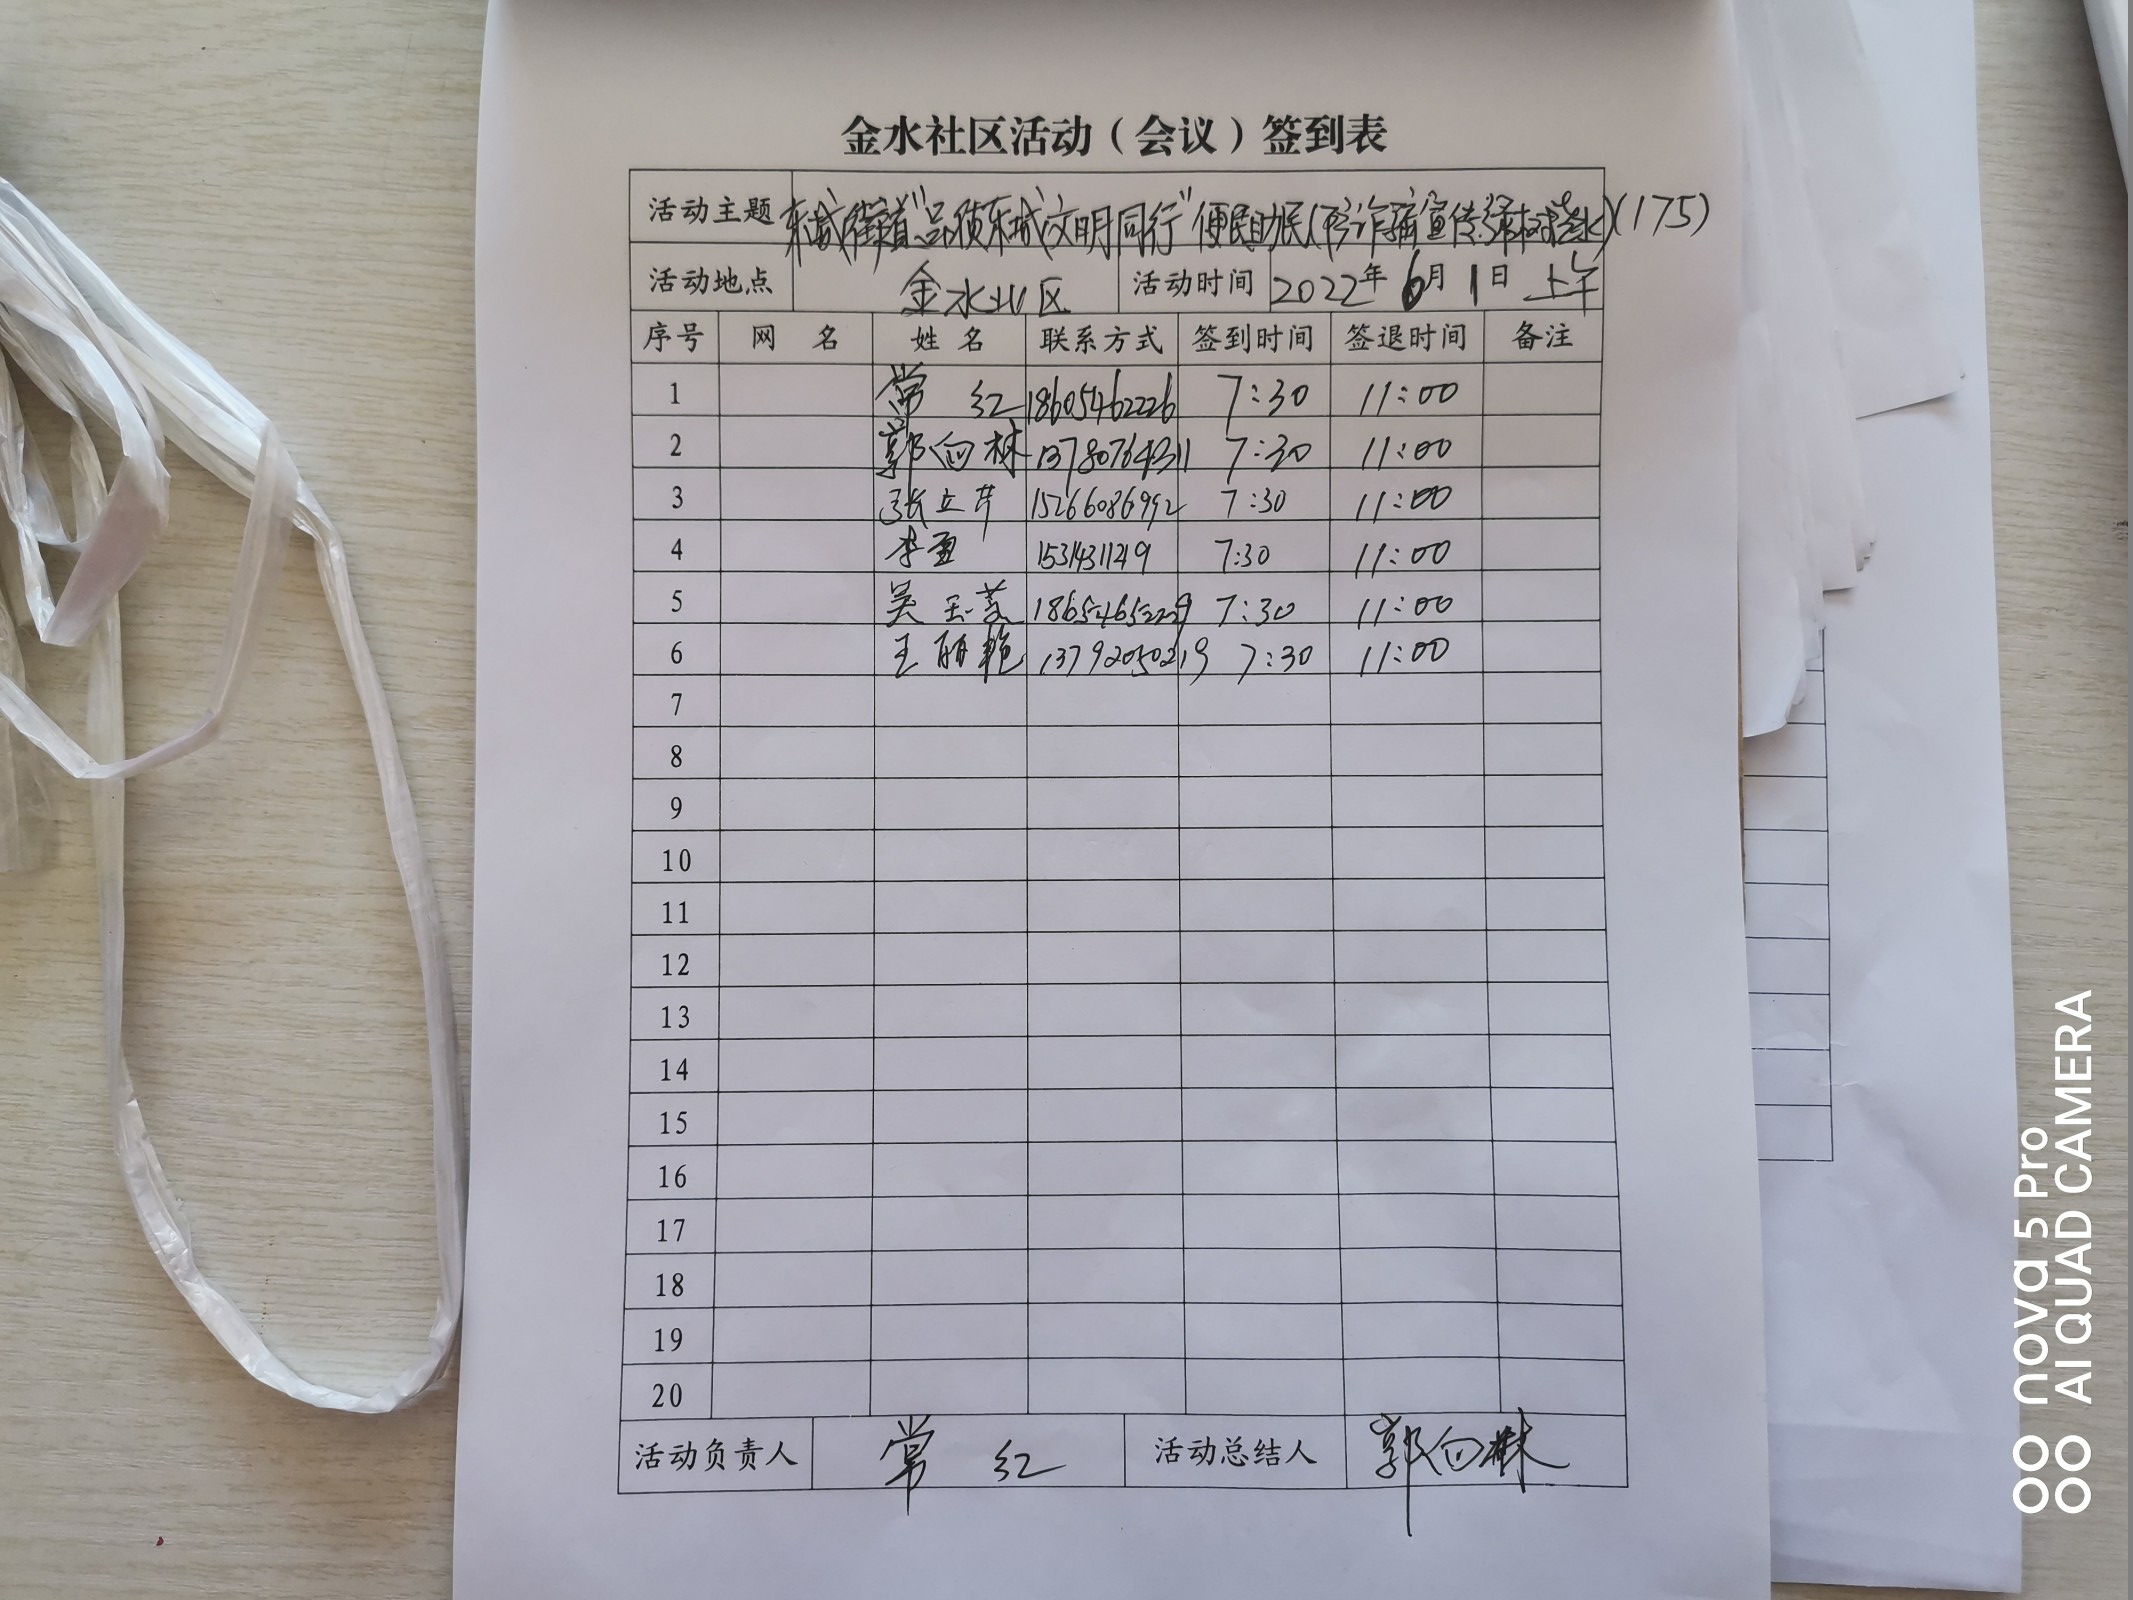 金水社区活动（会议）签到表
活动主题 东城街道"品质东城文明同行"便民助民(防诈骗宣传 绿树浇水)(175)
活动地点 金水北区 活动时间 2022年6月1日上午
序号 网名 姓名 联系方式 签到时间 签退时间 备注
1 常红 18605462226 7:30 11:00
2 郭向林 13780764311 7:30 11:00
3 张立芹 15266086992 7:30 11:00
4 李盈 7:30 11:00
5 吴玉芝 7:30 11:00
6 王丽艳 13792050219 7:30 11:00
7
8
9
10
11
12
13
14
15
16
17
18
19
20
活动负责人 常红 活动总结人 郭向林
nova 5 Pro
AI QUAD CAMERA